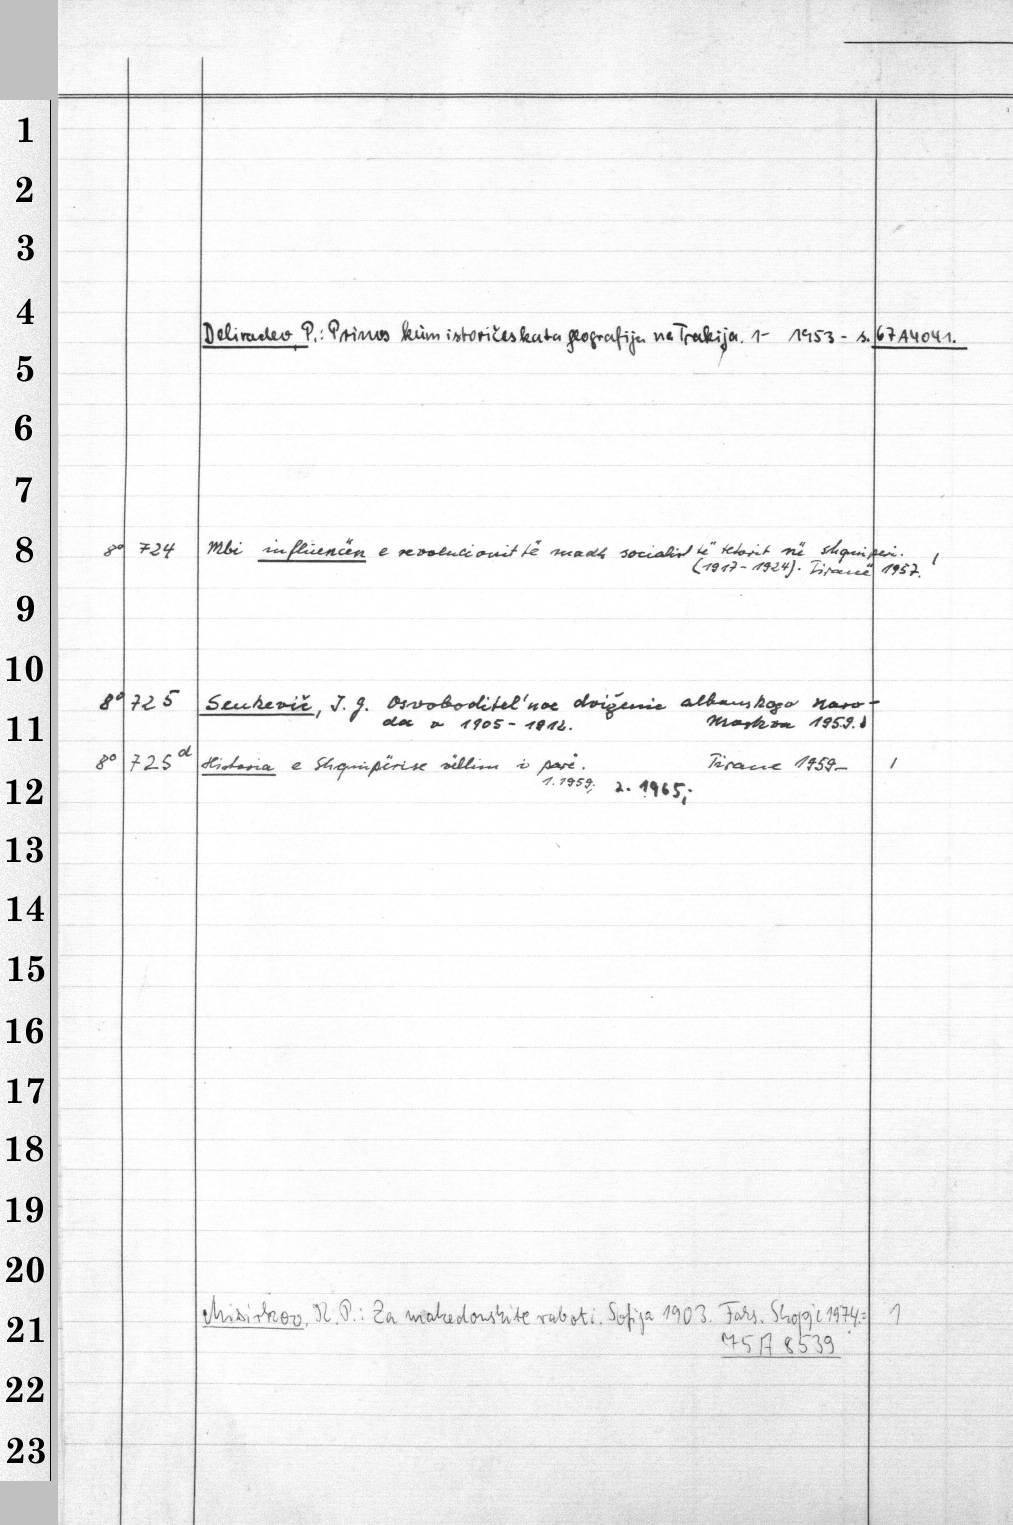 1
2
3
4
Deliradev, P.: Prinos kŭm istoričeskata geografija na Trakija. 1- 1953 - s. 67A4041.
5
6
7
8
8° 724 Mbi influencën e revolucionit të madh socialist të tetorit në Shqiperi. 1
(1917-1924). Tiranë 1957.
9
10
8° 725 Senkevič, I. G. Osvoboditel'noe dviženie albanskogo naro-
11
da v 1905-1912. Moskva 1959. 1
8° 725d Historia e Shqipërise vëllim i parë. Tirane 1959- 1
12
1. 1959; 2. 1965;
13
14
15
16
17
18
19
20
Misirkov, K. P.: Za makedonskite raboti. Sofija 1903. Faks. Skopje 1974.= 1
21
75 A 8539
22
23